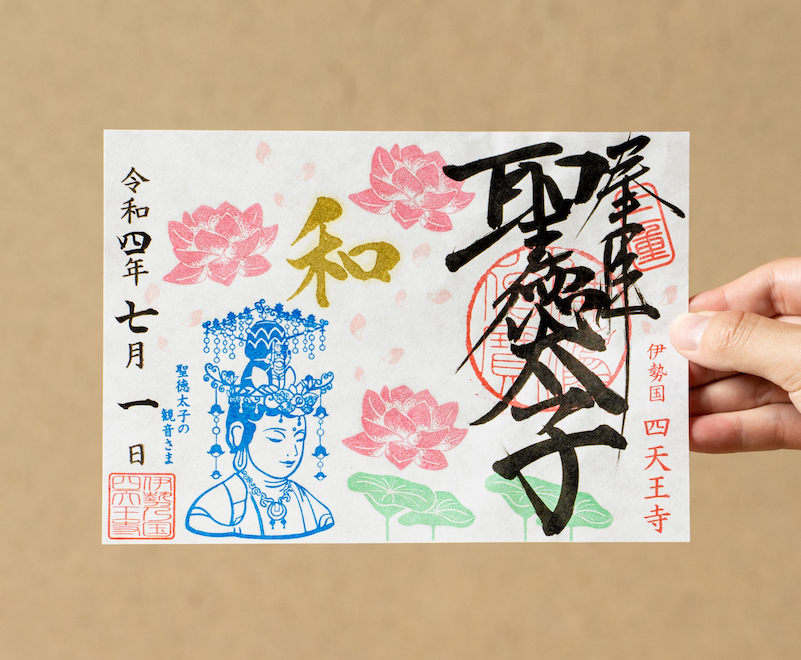 奉拝
三重
聖徳太子
伊勢国 四天王寺
和
聖徳太子の
観音さま
令和四年七月一日